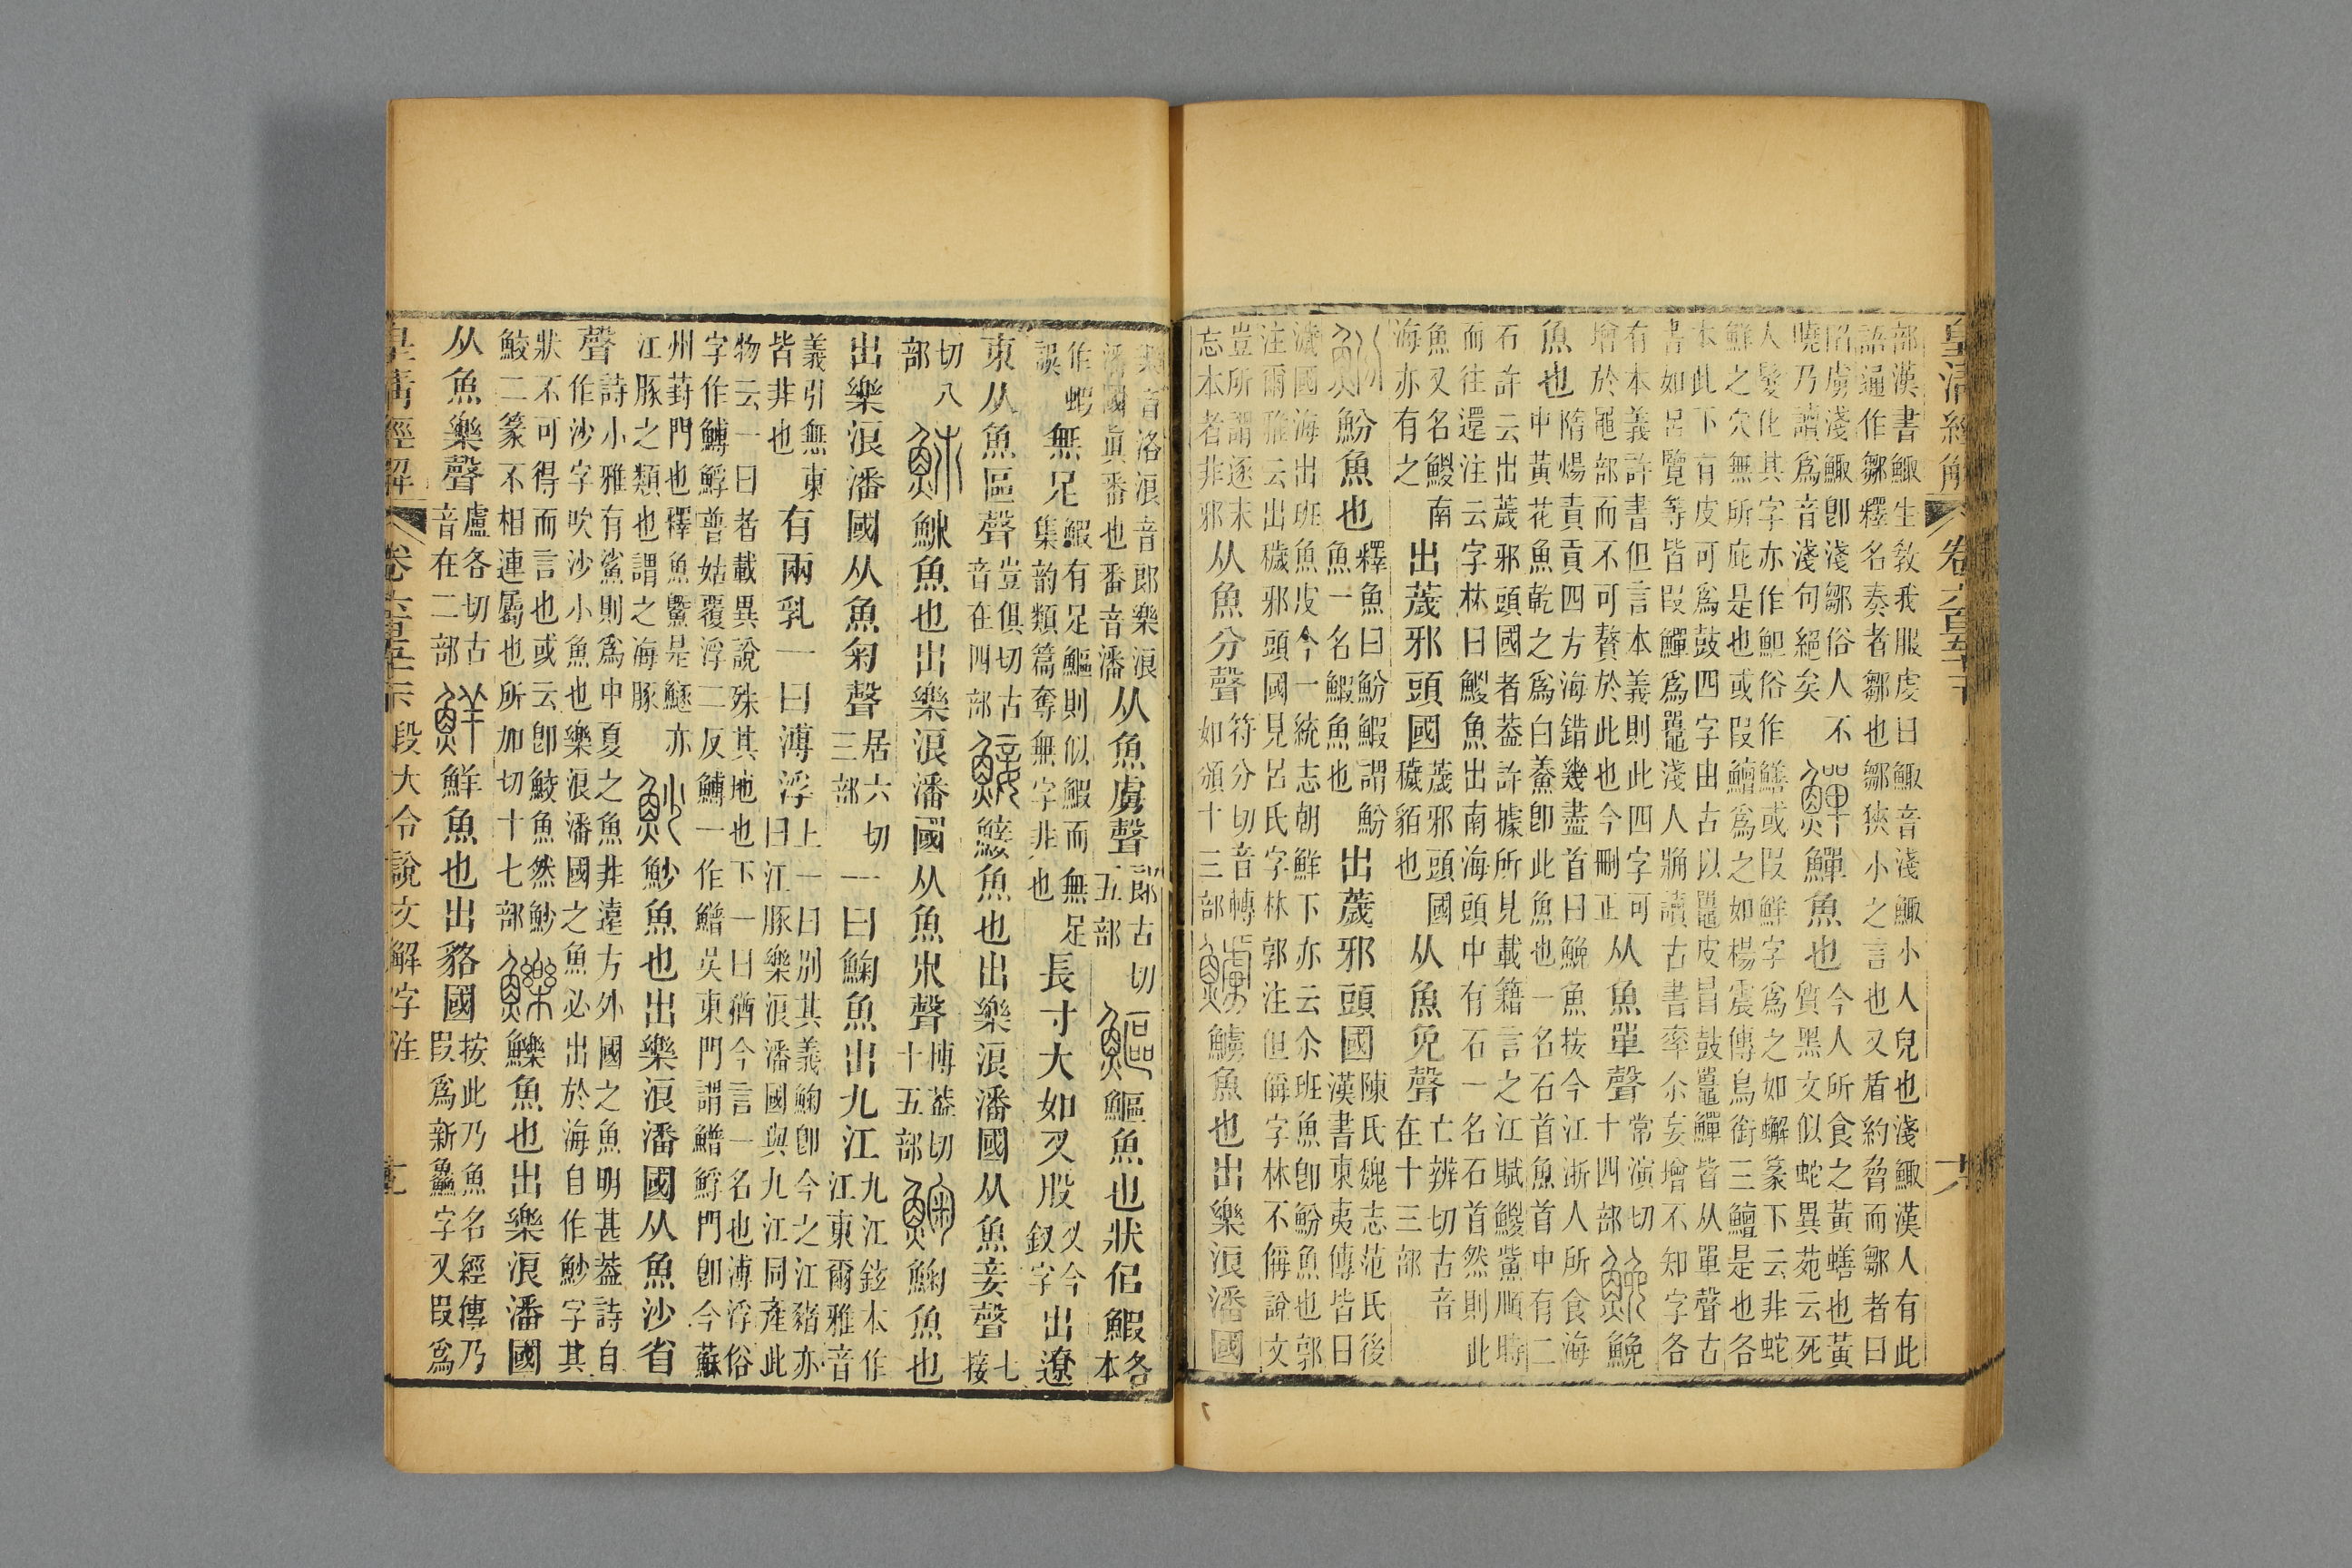 皇清經解
部漢書鯫生敎我服虔曰鯫音淺鯫小人皃也淺鯫漢人有此
語通作鄒釋名奏者鄒也鄒狹小之言也又盾約脅而鄒者曰
陷虜淺鯫卽淺鄒俗人不
曉乃讀爲音淺句絕矣
鱓魚也
今人所食之黃蟮也黃
質黑文似蛇異苑云死
人髮化其字亦作䱇俗作鱔或叚鮮字爲之如蠏篆下云非蛇
鮮之穴無所庇是也或叚鱣爲之如楊震傳鳥銜三鱣是也各
本此下有皮可爲鼓四字由古以鼉皮冒鼓鼉鱓皆从單聲古
書如呂覽等皆叚鱓爲鼉淺人牑讀古書率尒妄增不知字各
有本義許書但言本義則此四字可
增於黽部而不可贅於此也今刪正
从魚單聲
常演切
十四部
鮸
魚也
隋煬責貢四方海錯幾盡首曰鮸魚按今江浙人所食海
中黃花魚乾之爲白鯗卽此魚也一名石首魚首中有二
石許云出薉邪頭國者葢許據所見載籍言之江賦鯼鮆順時
而往還注云字林曰鯼魚出南海頭中有石一名石首然則此
魚又名鯼南
海亦有之
出薉邪頭國
薉邪頭國
穢貊也
从魚免聲
亡辨切古音
在十三部
魵魚也
釋魚曰魵鰕謂魵
魚一名鰕魚也
出薉邪頭國
陳氏魏志范氏後
漢書東夷傳皆曰
濊國海出班魚皮今一統志朝鮮下亦云尒班魚卽魵魚也郭
注爾雅云出穢邪頭國見呂氏字林郭注但偁字林不偁說文
豈所謂逐末
忘本者非邪
从魚分聲
符分切音轉
如頒十三部
䲐魚也出樂浪潘國
樂音洛浪音郎樂浪
潘國眞番也番音潘
从魚虜聲
郎古切
五部
鰸魚也狀佀鰕
各
本
作蝦
誤
無足
鰕有足鰸則似鰕而無足
集韵類篇奪無字非也
長寸大如叉股
叉今
釵字
出遼
東从魚區聲
豈俱切古
音在四部
鯜魚也出樂浪潘國从魚妾聲
七
接
切八
部
䰽魚也出樂浪潘國从魚𣎵聲
博葢切
十五部
䱡魚也
出樂浪潘國从魚菊聲
居六切
三部
一曰䱡魚出九江
九江鉉本作
江東爾雅音
義引無東
皆非也
有兩乳一曰溥浮
上一曰別其義䱡卽今之江豬亦
曰江豚樂浪潘國與九江同產此
物云一曰者載異說殊其地也下一曰猶今言一名也溥浮俗
字作鱄䱐普姑覆浮二反鱄一作鱛吳東門謂鱛䱐門卽今蘇
州葑門也釋魚鱀是鱁亦
江豚之類也謂之海豚
魦魚也出樂浪潘國从魚沙省
聲
詩小雅有鯊則爲中夏之魚非遠方外國之魚明甚葢詩自
作沙字吹沙小魚也樂浪潘國之魚必出於海自作魦字其
狀不可得而言也或云卽鮫魚然魦
鮫二篆不相連屬也所加切十七部
鱳魚也出樂浪潘國
从魚樂聲
盧各切古
音在二部
鮮魚也出貉國
按此乃魚名經傳乃
叚爲新鱻字又叚爲
皇清經解
段大令說文解字注